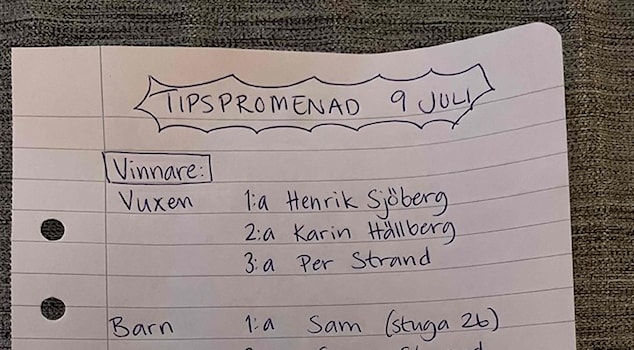 TIPSPROMENAD 9 JULI
Vinnare:
Vuxen 1:a Henrik Sjöberg
2:a Karin Hällberg
3:a Per Strand
Barn 1:a Sam (stuga 26)